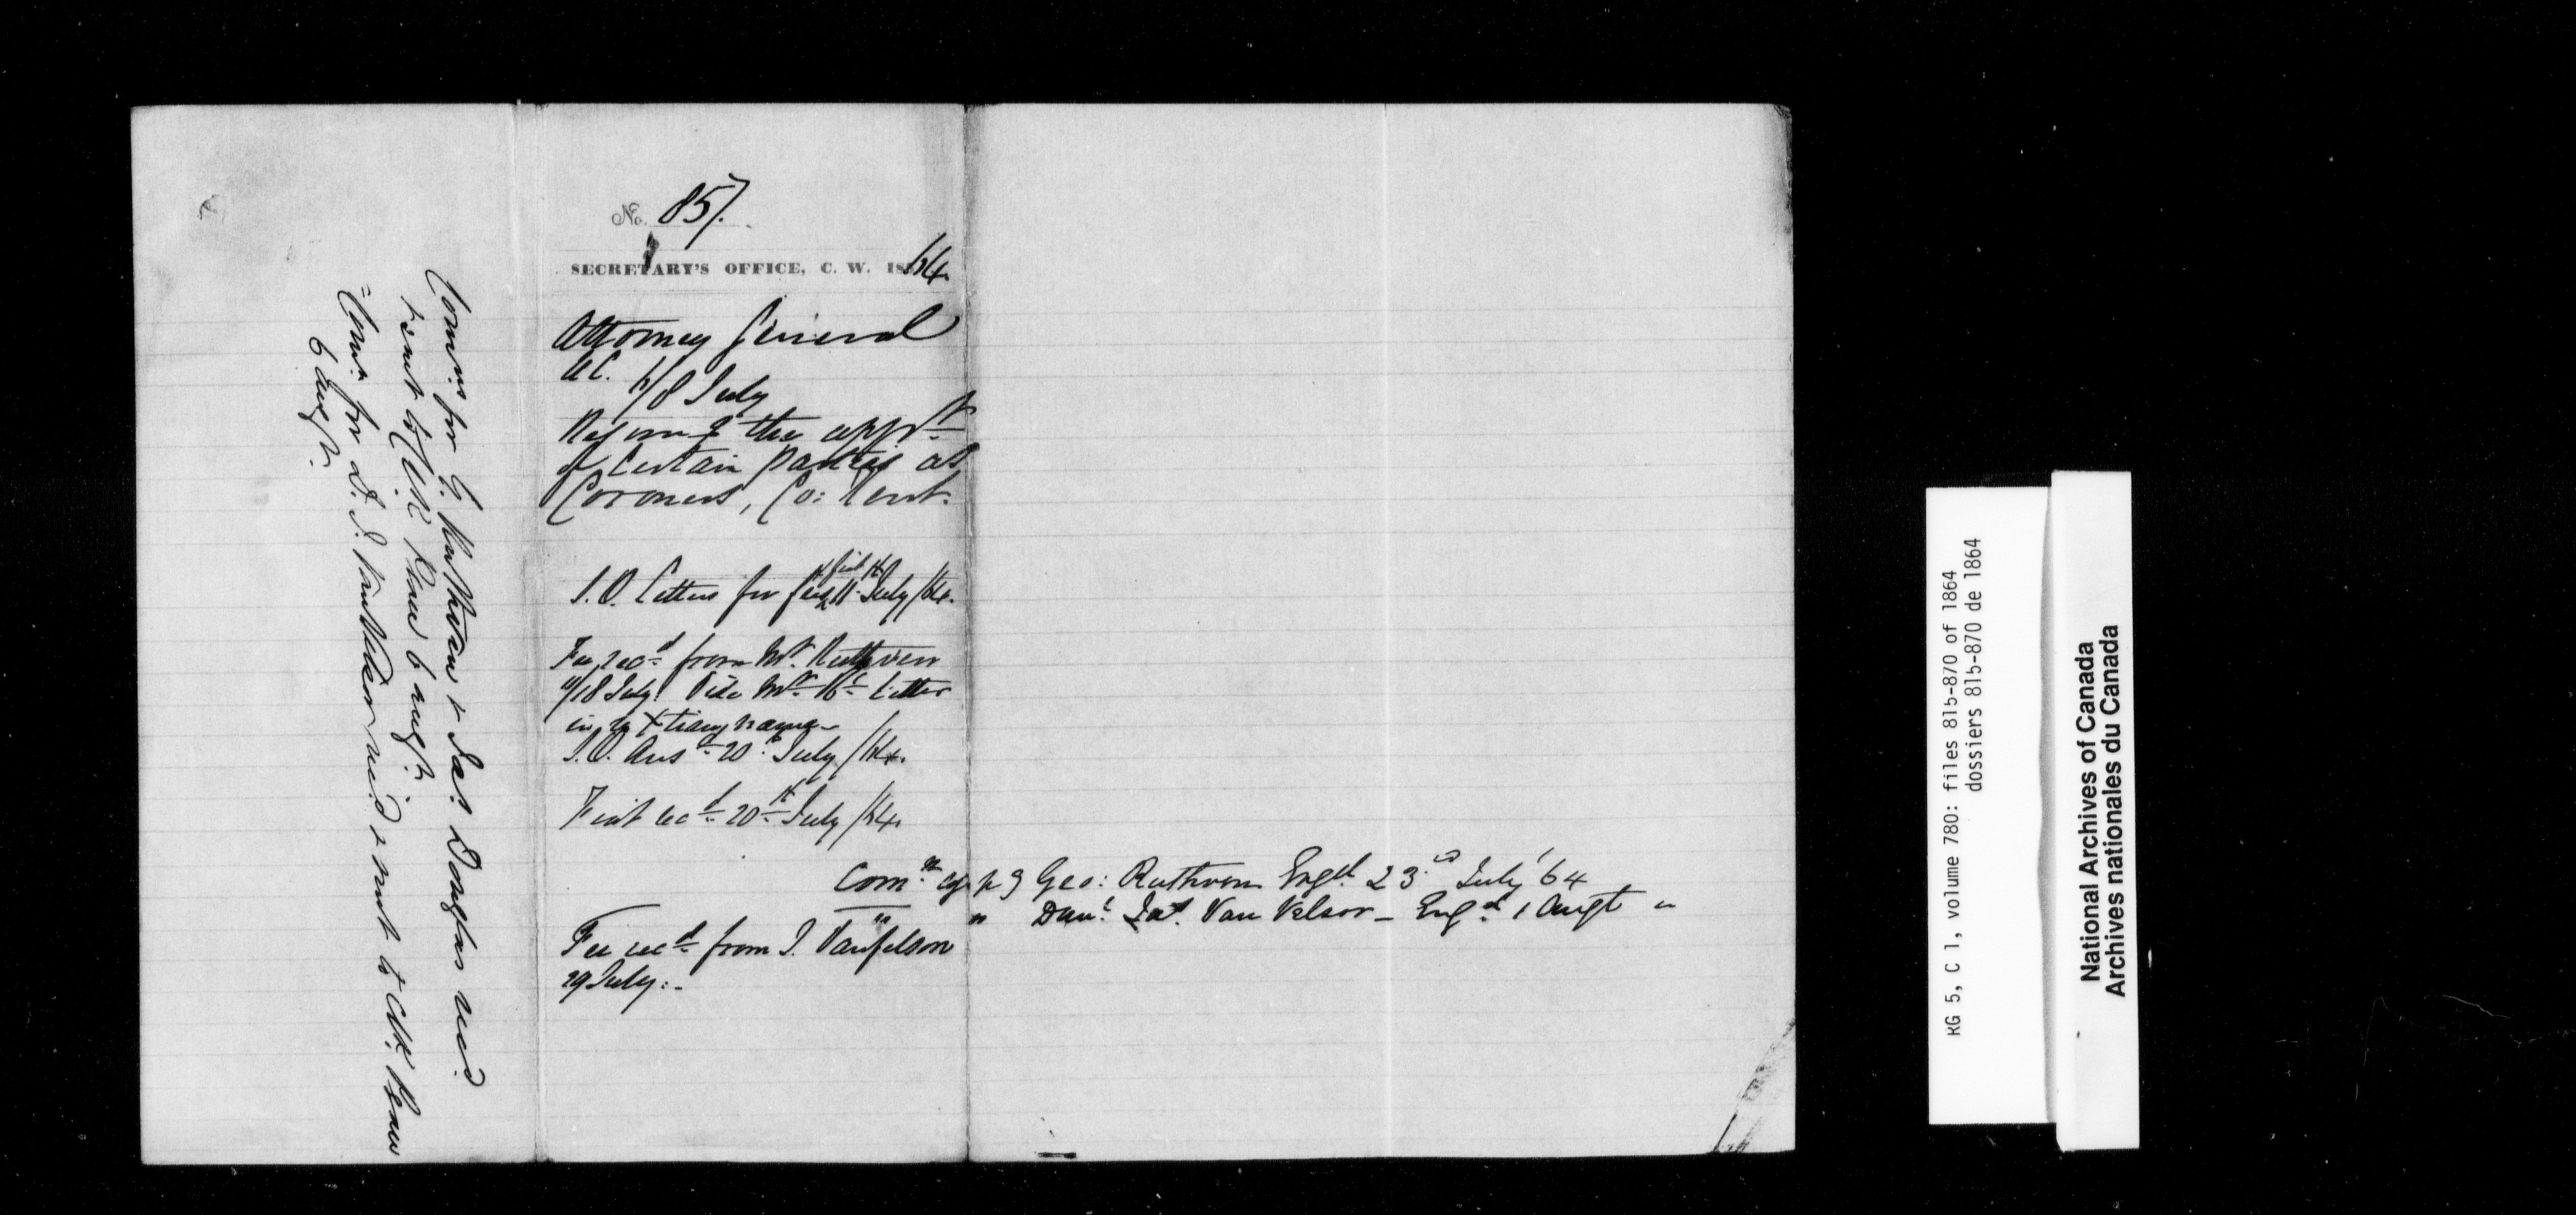 No. 857.
SECRETARY'S OFFICE, C. W. 1864.
Attorney General
U C. 6/8 July
Recom^g the app^t
of Certain parties as
Coroners, Co: Kent.
S. O. Letters for 11th July /64.
Fee rec^d from Mr. Ruthven
18 July. Vide Mr. R's Letter
name
S. O. Ans^d 20th July /64.
Fiat rec^d 20th July /64.
Com^n app^g Geo: Ruthven Engd 23rd July '64
" " Dan^l Jas. Van Velsor - Engd 1 Augt "
Fee rec^d from J. Vanfelson
29 July:-
Comns for G. Ruthven & Jas. Douglas recd
& sent to Clk Peace 6 augt.
Comn for D. J. Van Velsor recd & sent to Clk Peace
6 augt.
RG 5, C 1, volume 780: files 815-870 of 1864
dossiers 815-870 de 1864
National Archives of Canada
Archives nationales du Canada